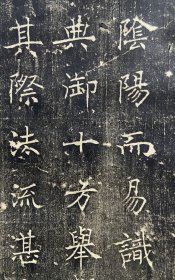 陰陽而易識
典御十方舉
其際法流湛